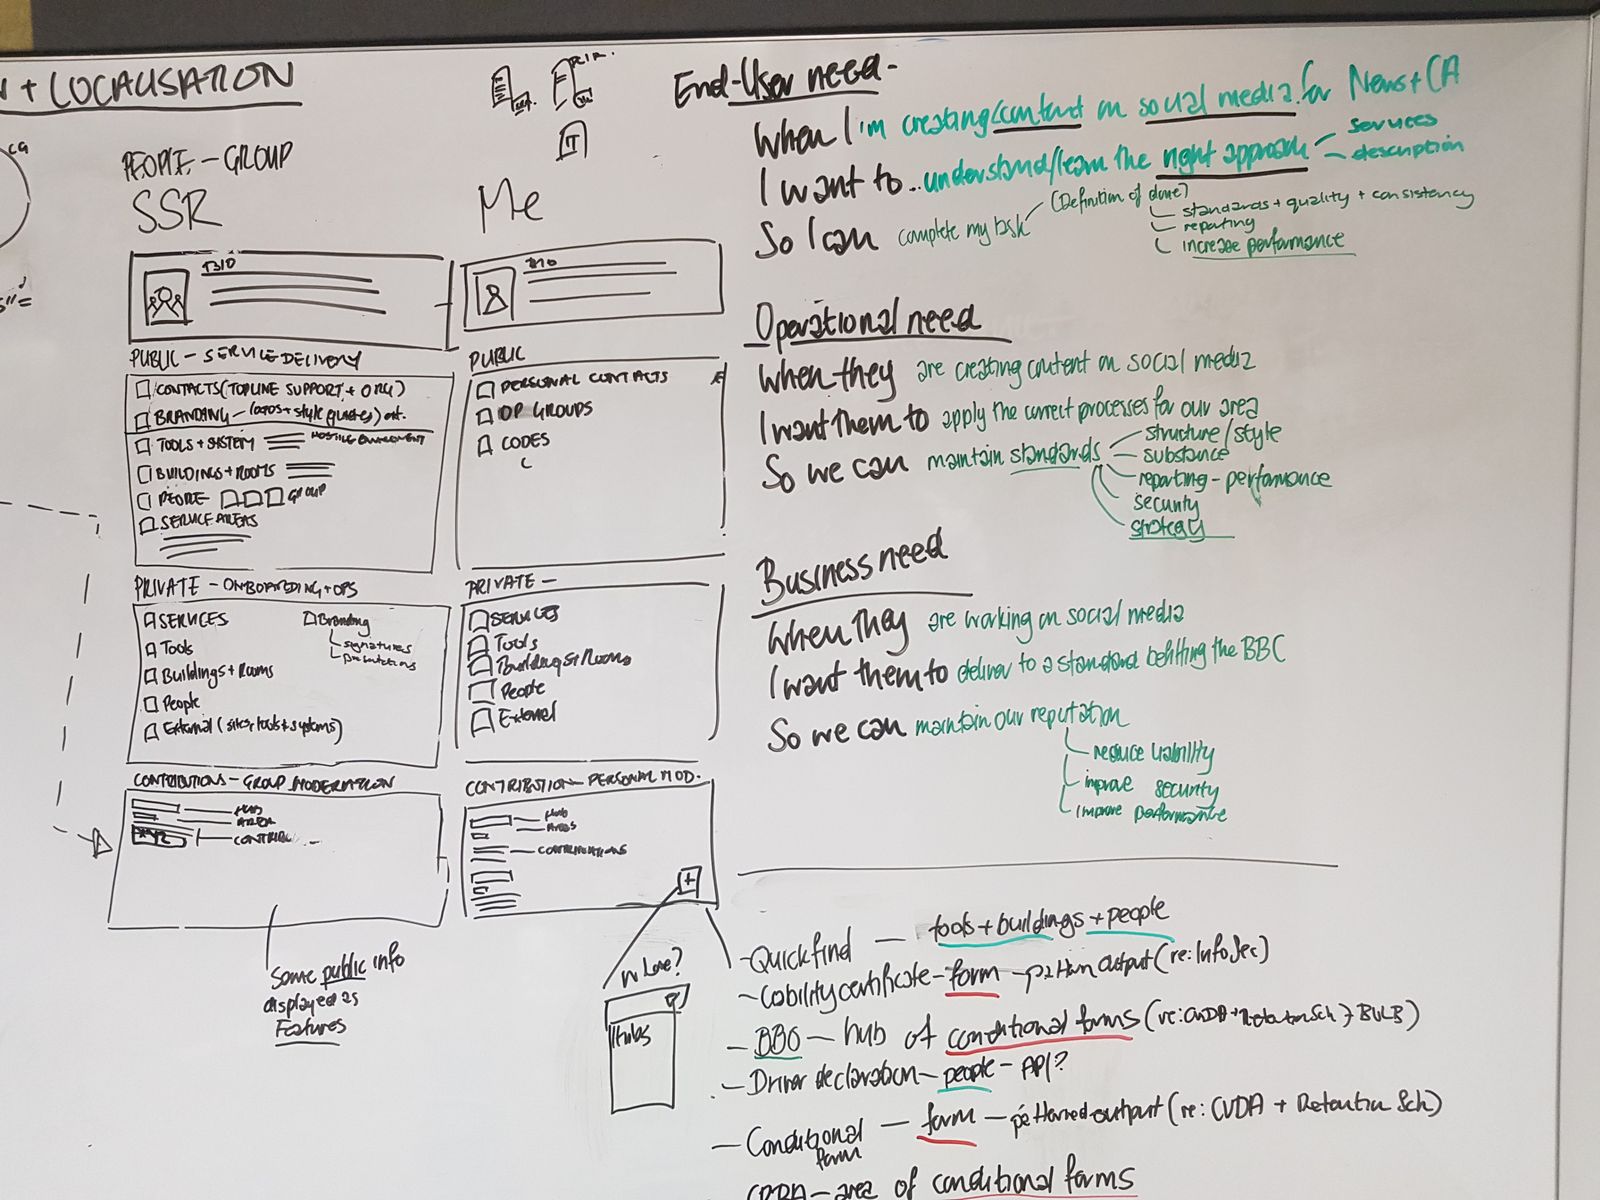 + LOCALISATION
CG
PEOPLE - GROUP
SSR
BIO
PUBLIC - SERVICE DELIVERY
CONTACTS (TOPLINE SUPPORT + ORG)
BRANDING - logos + style guides)
TOOLS + SYSTEM
BUILDINGS + ROOMS
PEOPLE GROUP
SERVICE AREAS
PRIVATE - ONBOARDING + OPS
SERVICES
Tools
Buildings + Rooms
People
External (sites, tools + systems)
Branding
signatures
CONTRIBUTIONS - GROUP MODERATION
HUB
AREA
Some public info
displayed as
Features
Me
BIO
PUBLIC
PERSONAL CONTACTS
OP GROUPS
CODES
PRIVATE -
SERVICES
Tools
Buildings + Rooms
People
External
CONTRIBUTION - PERSONAL MOD.
HUB
AREAS
CONTRIBUTIONS
+
Hubs
End-User need -
When I'm creating content on social media for News + CA
I want to.. understand/learn the right approach
services
description
So I can complete my task
(Definition of done)
standards + quality + consistency
reporting
increase performance
Operational need
When they are creating content on social media
I want them to apply the correct processes for our area
So we can maintain standards
structure/style
substance
reporting - performance
security
strategy
Business need
When they are working on social media
I want them to deliver to a standard befitting the BBC
So we can maintain our reputation
reduce liability
improve security
improve performance
- Quickfind - tools + buildings + people
certificate - form - output (re: InfoSec)
- BBO - hub of conditional forms
- Driver declaration - people - API?
- Conditional form - form - output (re: + Retention Sch)
- area of conditional forms